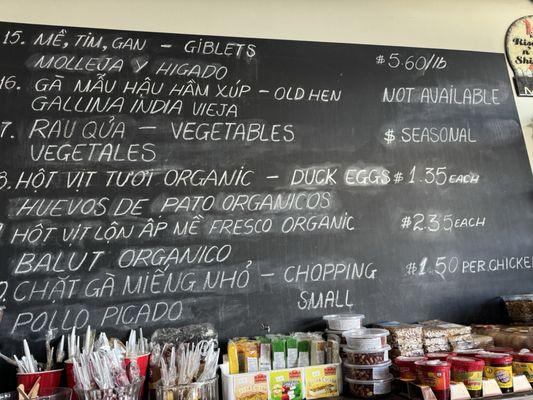 15. MỀ, TIM, GAN - GIBLETS $5.60/lb
MOLLEJA Y HIGADO
16. GÀ MẪU HẬU HẦM XÚP - OLD HEN NOT AVAILABLE
GALLINA INDIA VIEJA
7. RAU QỦA - VEGETABLES $ SEASONAL
VEGETALES
HỘT VỊT TƯƠI ORGANIC - DUCK EGGS $1.35 EACH
HUEVOS DE PATO ORGANICOS
HỘT VỊT LỘN ẤP MỀ FRESCO ORGANIC $2.35 EACH
BALUT ORGANICO
CHẶT GÀ MIẾNG NHỎ - CHOPPING $1.50 PER CHICKE
SMALL
POLLO PICADO